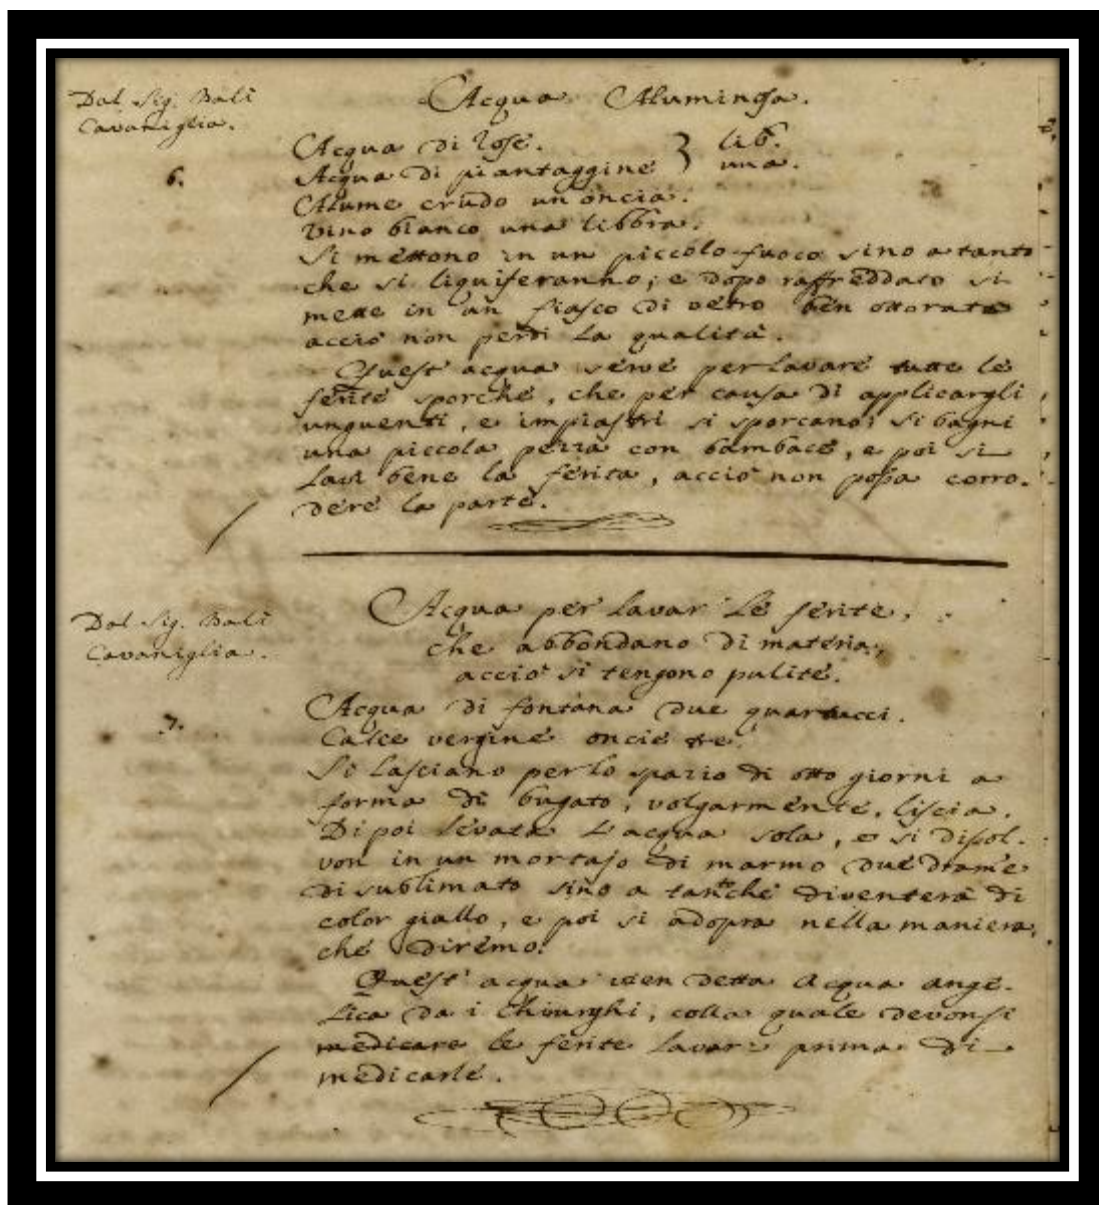 Dal Sig. Balì
Cavaniglia.
6.
Acqua Aluminosa.
Acqua di rose. } lib.
Acqua di piantaggine } una.
Alume crudo un'oncia.
Vino bianco una libbra.
Si mettono in un piccolo fuoco sino a tanto
che si liquiferanno; e dopo raffreddato si
mette in un fiasco di vetro ben otturato
acciò non perdi la qualità.
Quest' acqua serve per lavare tutte le
ferite sporche, che per causa di applicargli
unguenti, e impiastri si sporcano; si bagni
una piccola pezza con bambace, e poi si
lavi bene la ferita, acciò non possa corro-
dere la parte.
Dal Sig. Balì
Cavaniglia.
7.
Acqua per lavar le ferite,
che abbondano di materia,
acciò si tengono pulite.
Acqua di fontana due quartucci.
Calce vergine oncie tre.
Si lasciano per lo spazio di otto giorni a
forma di bugato, volgarmente, liscia.
Di poi levata l'acqua sola, e si disol-
von in un mortajo di marmo due drame
di sublimato sino a tanto che diventerà di
color giallo, e poi si adopra nella maniera,
che diremo.
Quest' acqua vien detta Acqua ange-
lica da i Chirurghi, colla quale devonsi
medicare le ferite lavar: prima di
medicarle.